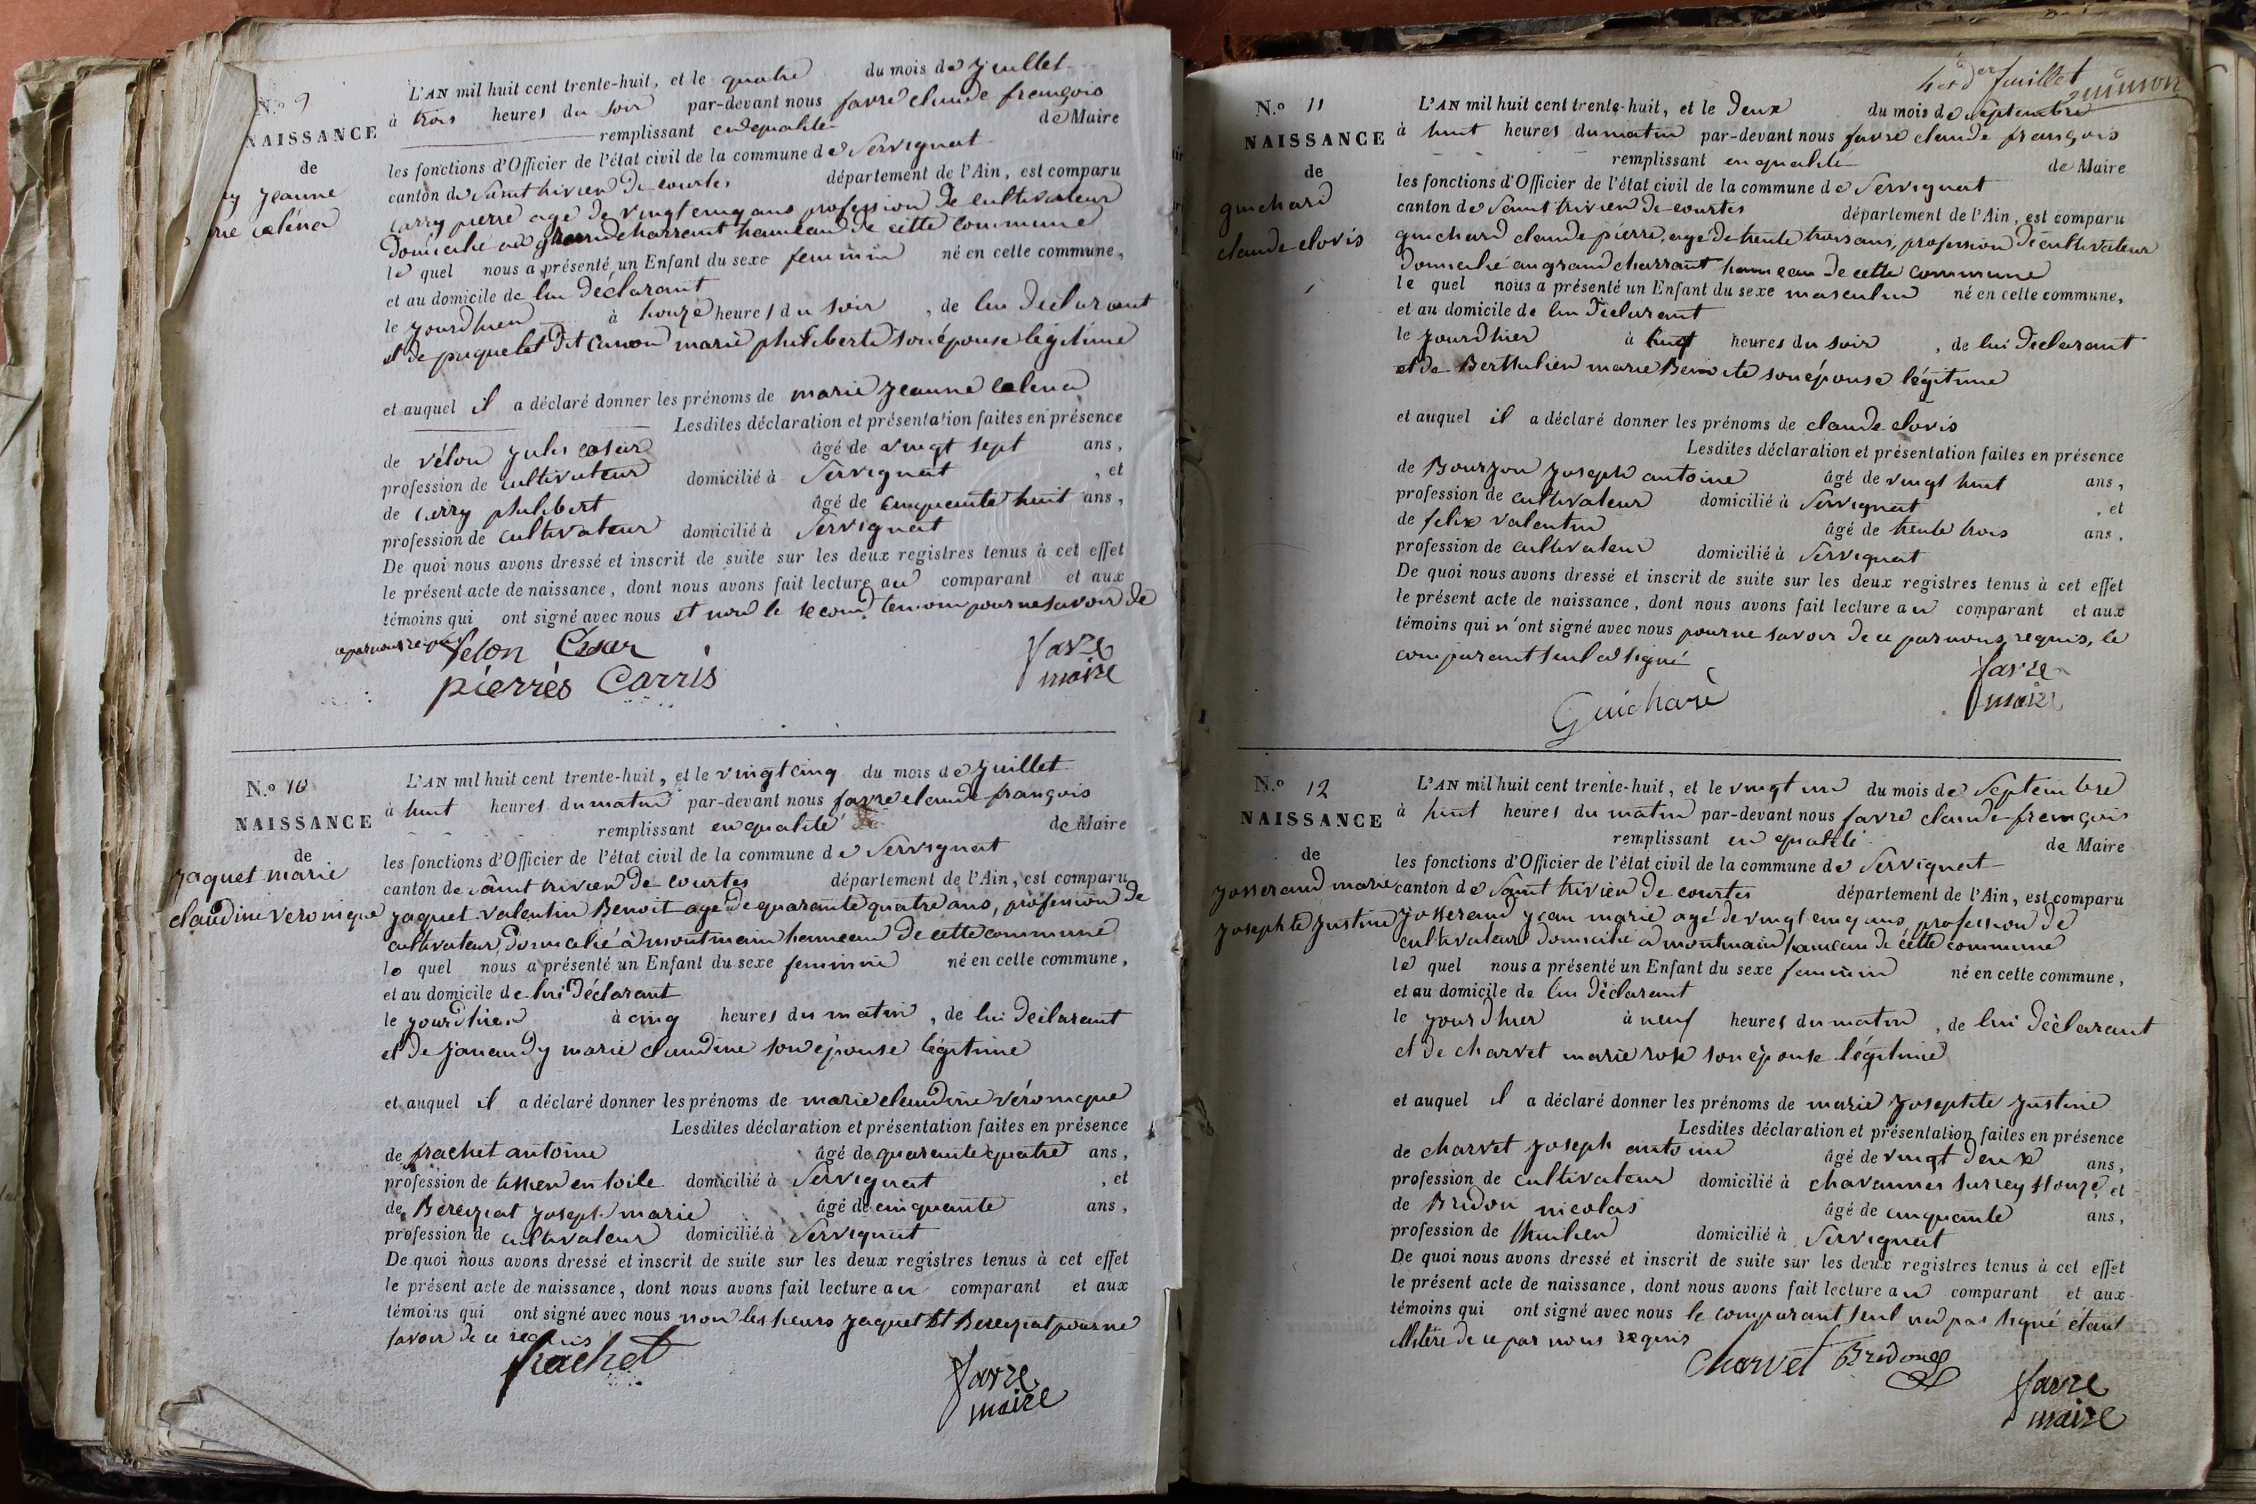 N.o 9
NAISSANCE
de
jeanne
calena
L'AN mil huit cent trente-huit, et le quatre du mois de juillet
à trois heures du soir par-devant nous favre claude françois
remplissant en qualité de Maire
les fonctions d'Officier de l'état civil de la commune de Servignat
canton de Saint trivier De courtes département de l'Ain, est comparu
Carry pierre agé De vingt cinq ans profession De cultivateur
Domicilié au grand charrant hameau De cette commune
le quel nous a présenté un Enfant du sexe feminin né en cette commune,
et au domicile de lui Déclarant
le jourd'hier à honze heures du soir, de lui Déclarant
et De puquelet Dit Canon marie philiberte son épouse légitime
et auquel il a déclaré donner les prénoms de marie jeanne calena
Lesdites déclaration et présentation faites en présence
de vélon jules cesar âgé de vingt sept ans,
profession de cultivateur domicilié à Servignat, et
de Carry philibert âgé de cinquante huit ans,
profession de cultivateur domicilié à Servignat
De quoi nous avons dressé et inscrit de suite sur les deux registres tenus à cet effet
le présent acte de naissance, dont nous avons fait lecture au comparant et aux
témoins qui ont signé avec nous et non le second temoin pour ne savoir de
ce par nous requis
Velon Cesar
pierres Carris
favre
maire
N.o 10
NAISSANCE
de
jaquet marie
claudine veronique
L'AN mil huit cent trente-huit, et le vingt cinq du mois de juillet
à huit heures du matin par-devant nous favre claude françois
remplissant en qualité de Maire
les fonctions d'Officier de l'état civil de la commune de Servignat
canton de saint trivier De courtes département de l'Ain, est comparu
jaquet valentin Benoit agé De quarante quatre ans, profession De
cultivateur, Domicilié à montmain hameau De cette commune
le quel nous a présenté un Enfant du sexe feminin né en cette commune,
et au domicile de lui Déclarant
le jourd'hier à cinq heures du matin, de lui Déclarant
et De janaudy marie claudine son épouse légitime
et auquel il a déclaré donner les prénoms de marie claudine véronique
Lesdites déclaration et présentation faites en présence
de frachet antoine âgé de quarante quatre ans,
profession de tissier en toile domicilié à Servignat, et
de Bereyziat joseph marie âgé de cinquante ans,
profession de cultivateur domicilié à Servignat
De quoi nous avons dressé et inscrit de suite sur les deux registres tenus à cet effet
le présent acte de naissance, dont nous avons fait lecture au comparant et aux
témoins qui ont signé avec nous non les sieurs jaquet et Bereyziat pour ne
savoir de ce requis
frachet
favre
maire
feuillet
N.o 11
NAISSANCE
de
guichard
claude clovis
L'AN mil huit cent trente-huit, et le Deux du mois de septembre
à huit heures du matin par-devant nous favre claude françois
remplissant en qualité de Maire
les fonctions d'Officier de l'état civil de la commune de Servignat
canton de Saint trivier De courtes département de l'Ain, est comparu
guichard claude pierre, agé de trente trois ans, profession De cultivateur
Domicilié au grand charrant hameau De cette commune
le quel nous a présenté un Enfant du sexe masculin né en cette commune,
et au domicile de lui Déclarant
le jourd'hier à huit heures du soir, de lui Déclarant
et de Berthulien marie Benoite son épouse légitime
et auquel il a déclaré donner les prénoms de claude clovis
Lesdites déclaration et présentation faites en présence
de Bourjon joseph antoine âgé de vingt huit ans,
profession de cultivateur domicilié à Servignat, et
de felix valentin âgé de trente trois ans,
profession de cultivateur domicilié à Servignat
De quoi nous avons dressé et inscrit de suite sur les deux registres tenus à cet effet
le présent acte de naissance, dont nous avons fait lecture au comparant et aux
témoins qui n'ont signé avec nous pour ne savoir de ce par nous requis, le
comparant seul a signé
Guichard
favre
maire
N.o 12
NAISSANCE
de
josserand marie
josephte justine
L'AN mil huit cent trente-huit, et le vingt un du mois de Septembre
à huit heures du matin par-devant nous favre claude françois
remplissant en qualité de Maire
les fonctions d'Officier de l'état civil de la commune de Servignat
canton de Saint trivier De courtes département de l'Ain, est comparu
josserand jean marie agé de vingt cinq ans profession De
cultivateur domicilié a montmain hameau de cette commune
le quel nous a présenté un Enfant du sexe feminin né en cette commune,
et au domicile de lui Déclarant
le jourd'hier à neuf heures du matin, de lui Déclarant
et de charvet marie rose son épouse légitime
et auquel il a déclaré donner les prénoms de marie josephte justine
Lesdites déclaration et présentation faites en présence
de charvet joseph antoine âgé de vingt deux ans,
profession de cultivateur domicilié à chavannes sur reyssouze, et
de Bridon nicolas âgé de cinquante ans,
profession de thuilier domicilié à Servignat
De quoi nous avons dressé et inscrit de suite sur les deux registres tenus à cet effet
le présent acte de naissance, dont nous avons fait lecture au comparant et aux
témoins qui ont signé avec nous le comparant seul n'a pas signé étant
illitéré de ce par nous requis
Charvet Bridon
favre
maire